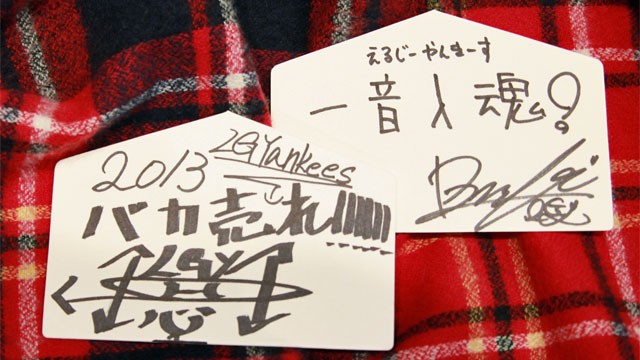 2013
LGYankees
バカ売れ!!!!!!
えるじーやんきーす
一音人魂?